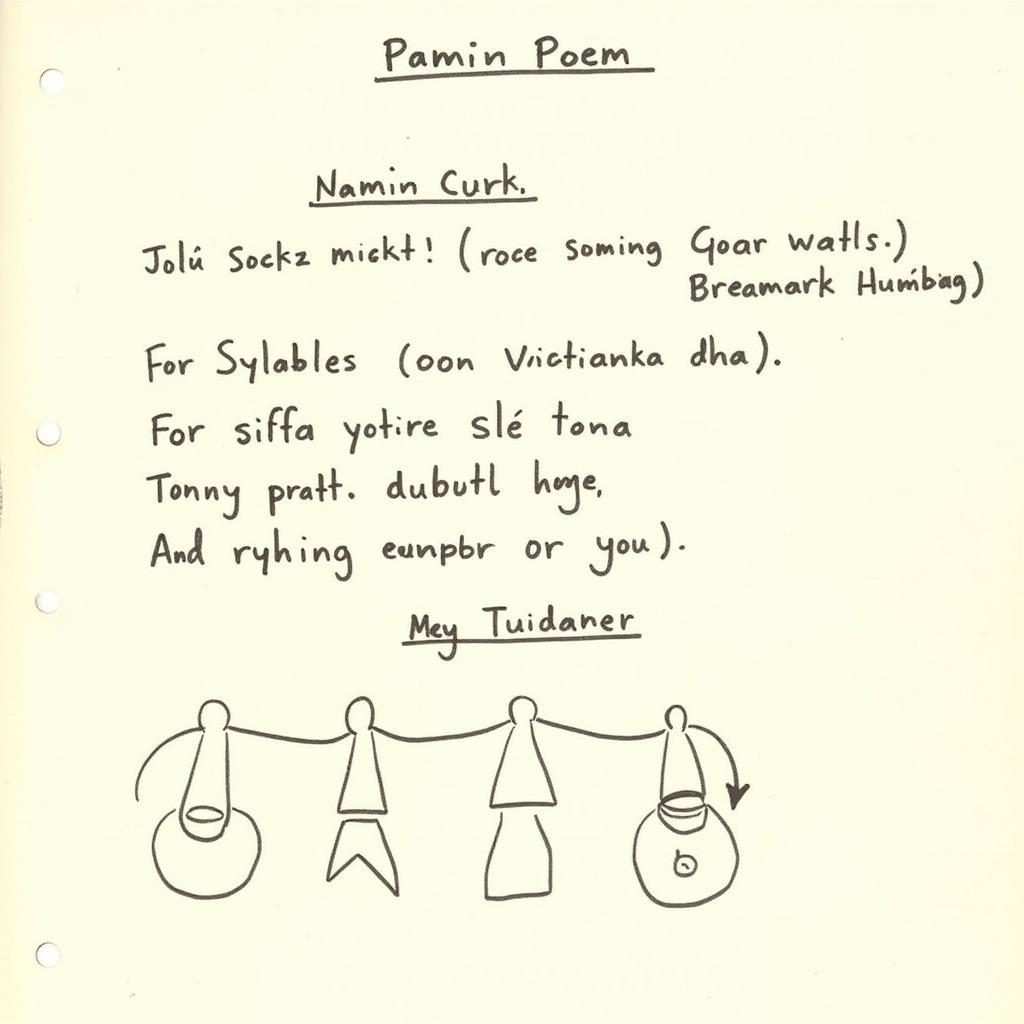 Pamin Poem
Namin Curk.
Jolú Sockz mickt! (roce soming Goar watls.)
Breamark Humbag)
For Sylables (oon Vrictianka dha).
For siffa yotire slé tona
Tonny pratt. dubutl hoye,
And ryhing eunpbr or you).
Mey Tuidaner